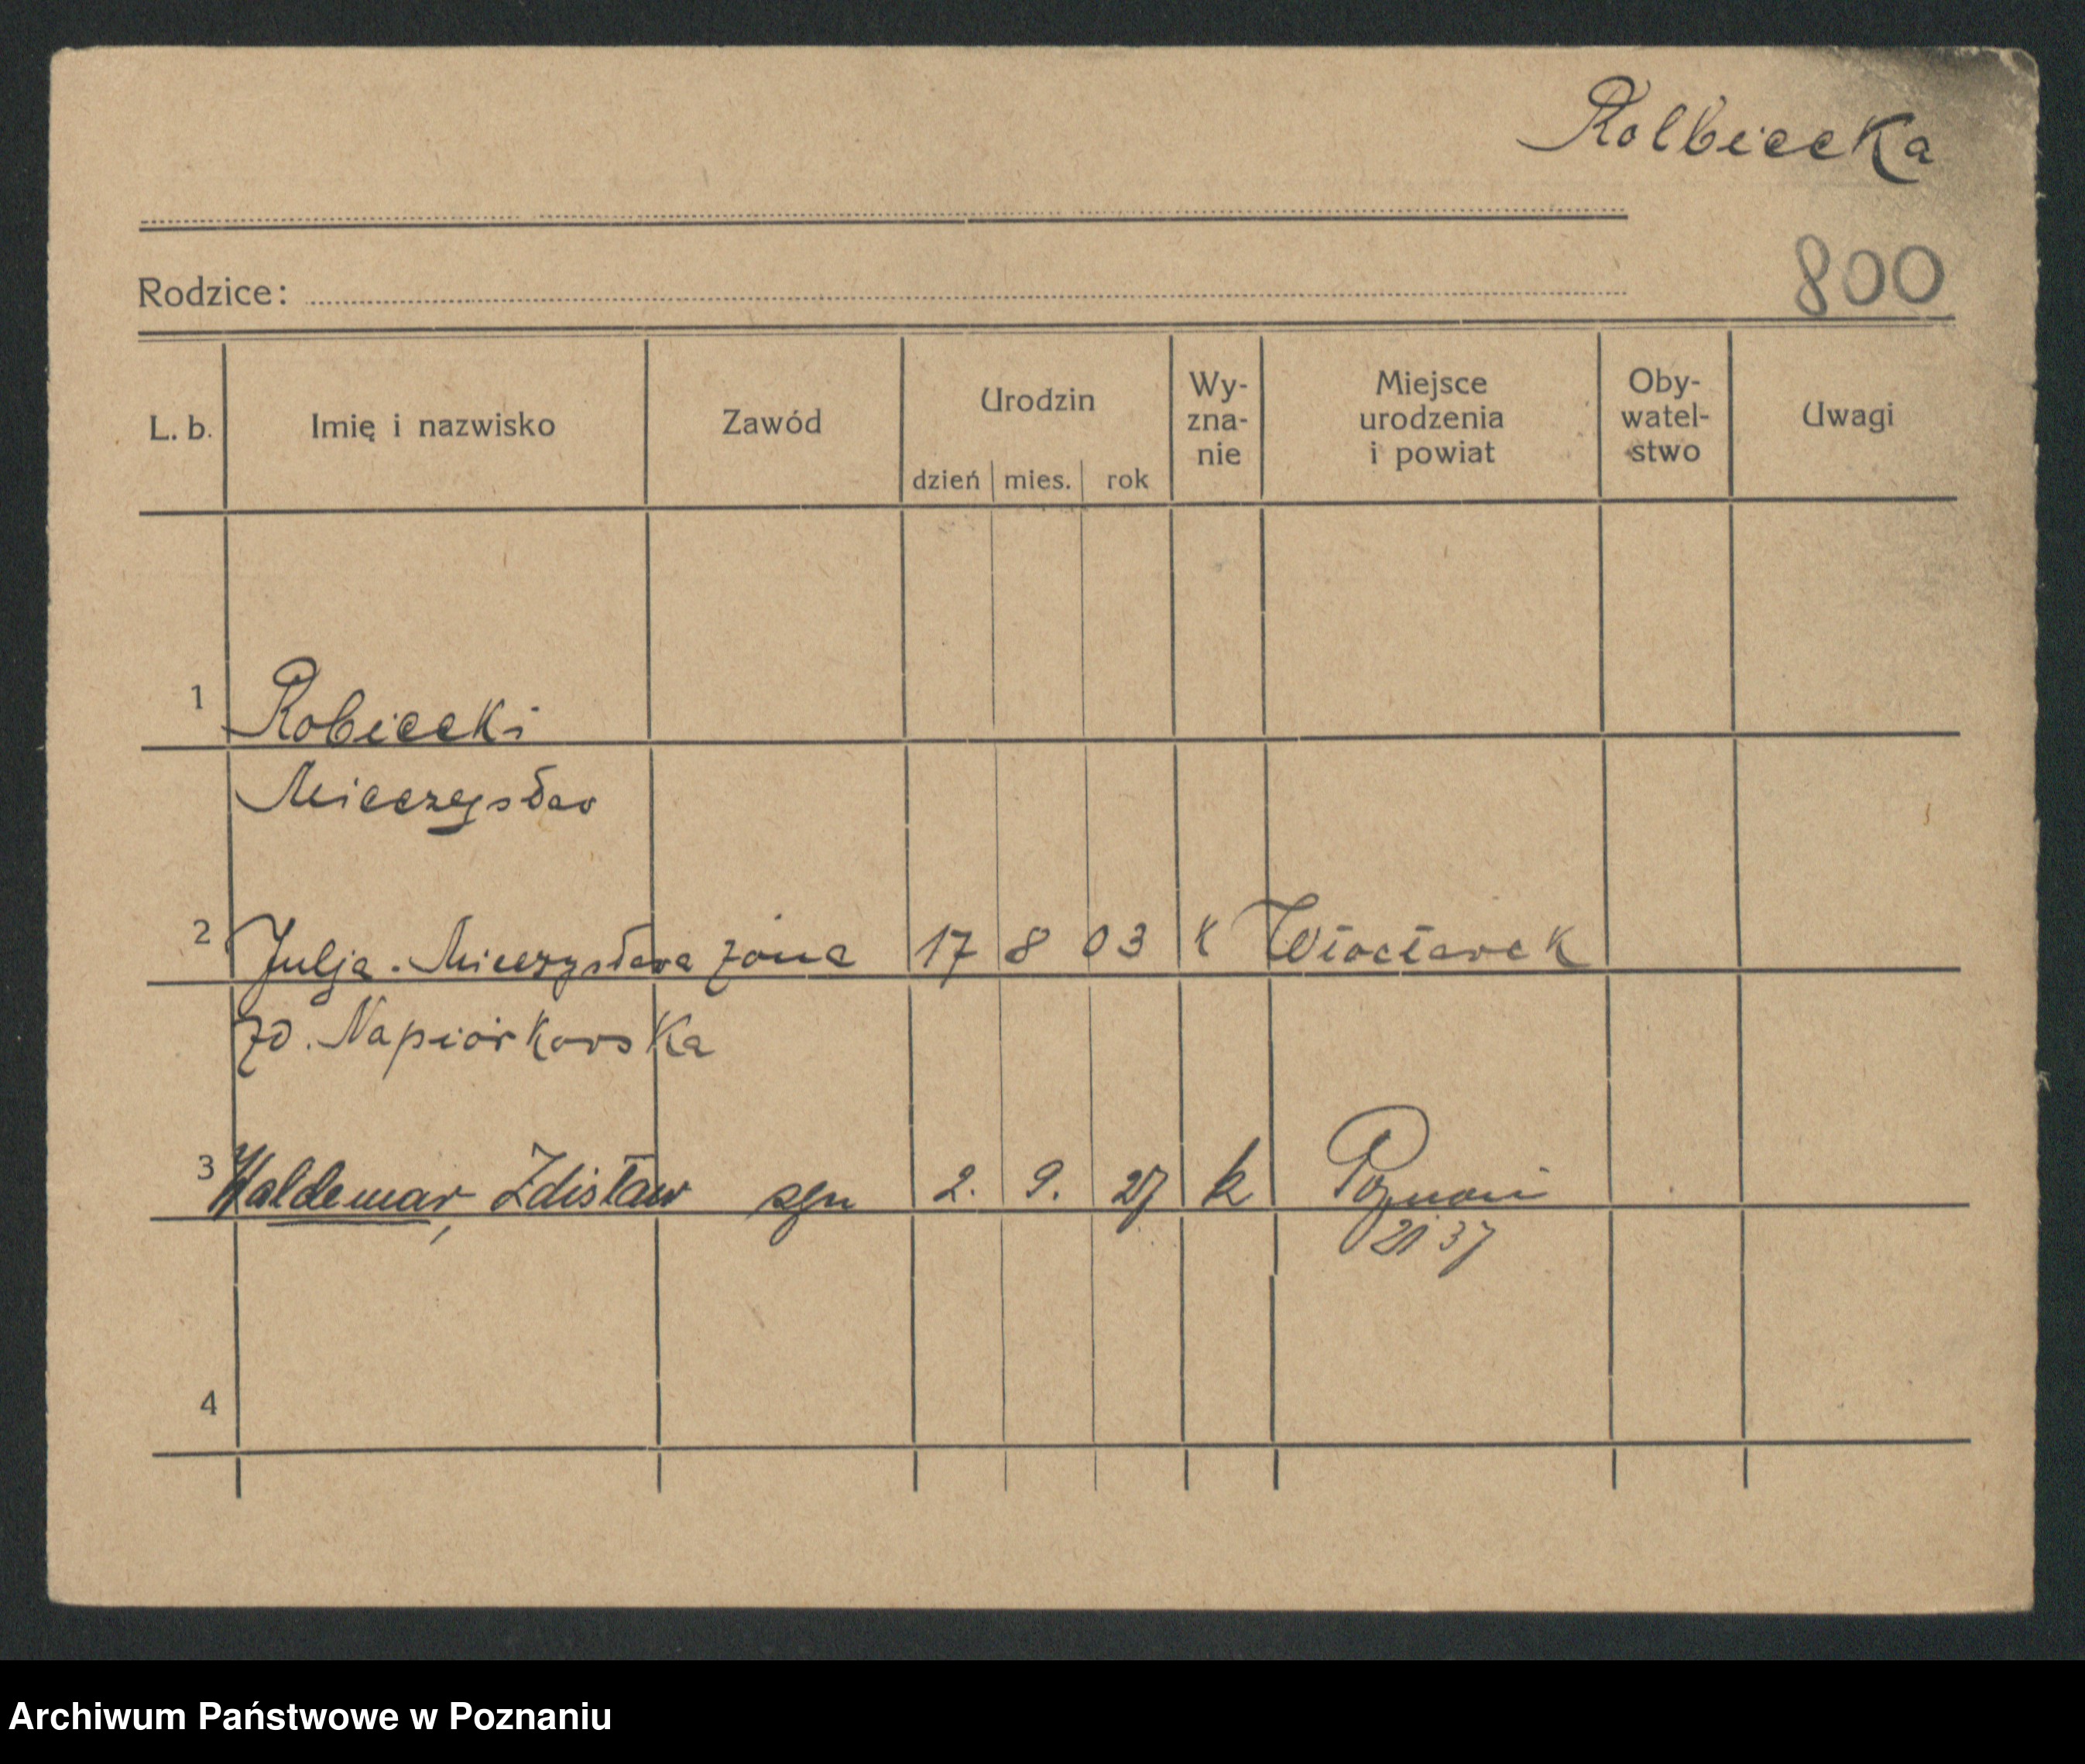 Rolbiecka
800
Rodzice:
L. b. Imię i nazwisko Zawód Urodzin dzień mies. rok Wy-zna-nie Miejsce urodzenia i powiat Oby-watel-stwo Uwagi
1 Robiecki
Mieczysław
2 Julja - Mieczysława żona 17 8 03 k Włocławek
zd. Napiórkowska
3 Waldemar, Zdisław syn 2. 9. 27 k Poznań
37
4
Archiwum Państwowe w Poznaniu